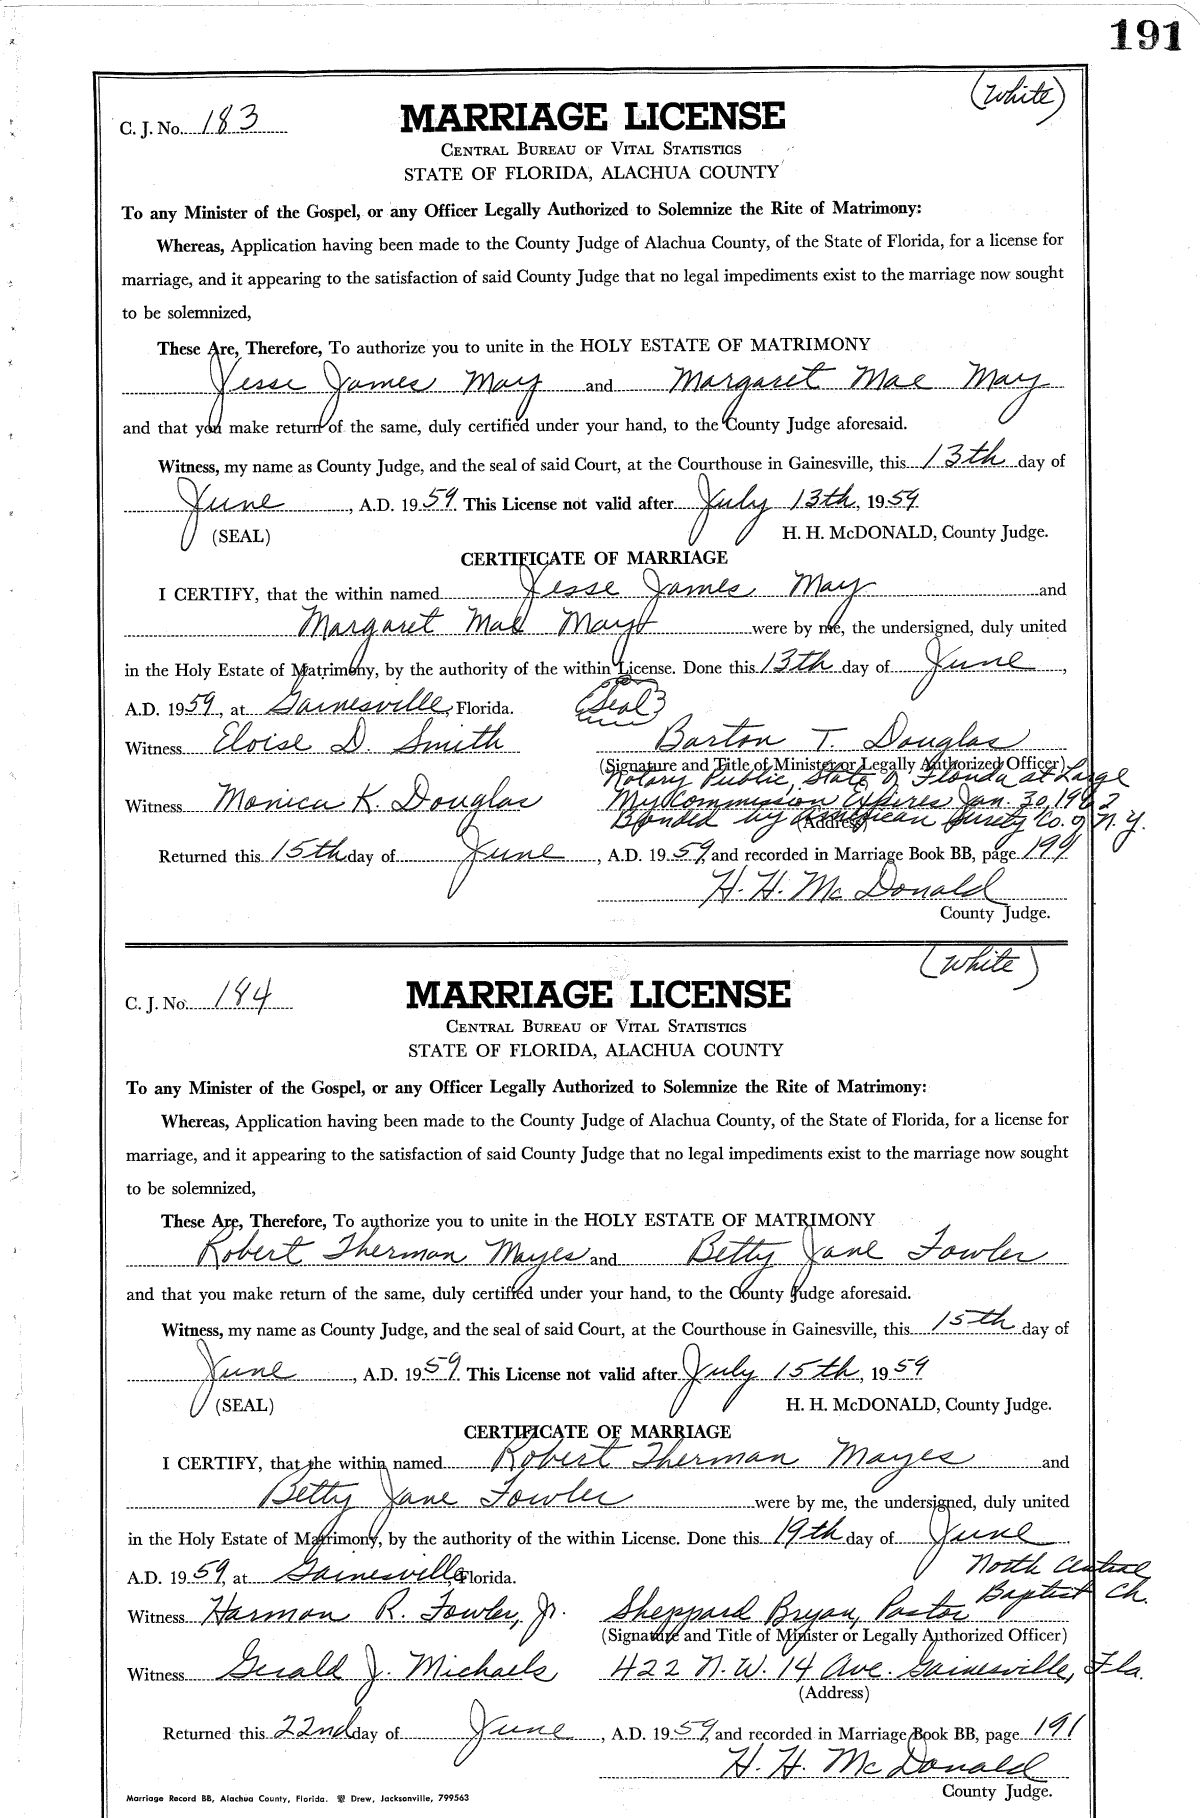 191
(White)
C. J. No. 183
MARRIAGE LICENSE
CENTRAL BUREAU OF VITAL STATISTICS
STATE OF FLORIDA, ALACHUA COUNTY
To any Minister of the Gospel, or any Officer Legally Authorized to Solemnize the Rite of Matrimony:
Whereas, Application having been made to the County Judge of Alachua County, of the State of Florida, for a license for
marriage, and it appearing to the satisfaction of said County Judge that no legal impediments exist to the marriage now sought
to be solemnized,
These Are, Therefore, To authorize you to unite in the HOLY ESTATE OF MATRIMONY
Jesse James May and Margaret Mae May
and that you make return of the same, duly certified under your hand, to the County Judge aforesaid.
Witness, my name as County Judge, and the seal of said Court, at the Courthouse in Gainesville, this 13th day of
June, A.D. 1959. This License not valid after July 13th, 1959
(SEAL) H. H. McDONALD, County Judge.
CERTIFICATE OF MARRIAGE
I CERTIFY, that the within named Jesse James May and
Margaret Mae May were by me, the undersigned, duly united
in the Holy Estate of Matrimony, by the authority of the within License. Done this 13th day of June,
A.D. 1959, at Gainesville, Florida. (Seal)
Witness Eloise D. Smith Barton T. Douglas
(Signature and Title of Minister or Legally Authorized Officer)
Notary Public, State of Florida at Large
Witness Monica K. Douglas My Commission Expires Jan. 30, 1962
Bonded by American Surety Co. of N.Y.
(Address)
Returned this 15th day of June, A.D. 1959, and recorded in Marriage Book BB, page 191
H. H. McDonald
County Judge.
(White)
C. J. No. 184
MARRIAGE LICENSE
CENTRAL BUREAU OF VITAL STATISTICS
STATE OF FLORIDA, ALACHUA COUNTY
To any Minister of the Gospel, or any Officer Legally Authorized to Solemnize the Rite of Matrimony:
Whereas, Application having been made to the County Judge of Alachua County, of the State of Florida, for a license for
marriage, and it appearing to the satisfaction of said County Judge that no legal impediments exist to the marriage now sought
to be solemnized,
These Are, Therefore, To authorize you to unite in the HOLY ESTATE OF MATRIMONY
Robert Therman Mayes and Betty Jane Fowler
and that you make return of the same, duly certified under your hand, to the County Judge aforesaid.
Witness, my name as County Judge, and the seal of said Court, at the Courthouse in Gainesville, this 15th day of
June, A.D. 1959. This License not valid after July 15th, 1959
(SEAL) H. H. McDONALD, County Judge.
CERTIFICATE OF MARRIAGE
I CERTIFY, that the within named Robert Therman Mayes and
Betty Jane Fowler were by me, the undersigned, duly united
in the Holy Estate of Matrimony, by the authority of the within License. Done this 19th day of June
A.D. 1959, at Gainesville, Florida. North Central
Baptist Ch.
Witness Harmon R. Fowler, Jr. Sheppard Bryan, Pastor
(Signature and Title of Minister or Legally Authorized Officer)
Witness Gerald J. Michaels 422 N.W. 14 Ave. Gainesville, Fla.
(Address)
Returned this 22nd day of June, A.D. 1959, and recorded in Marriage Book BB, page 191
H. H. McDonald
County Judge.
Marriage Record BB, Alachua County, Florida. Drew, Jacksonville, 799563